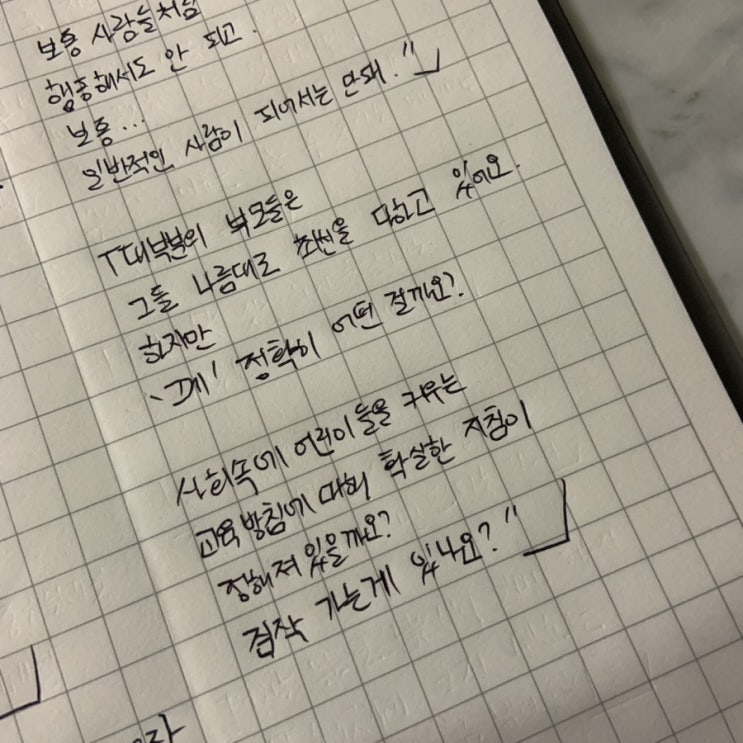 보통 사람들처럼
행동해서도 안 되고.
보통...
일반적인 사람이 되어서는 안돼."」
「대부분의 부모들은
그들 나름대로 최선을 다하고 있어요.
하지만
'그게' 정확히 어떤 걸까요?
사회속에 어린이들을 키우는
교육방침에 대해 확실한 지침이
정해져 있을까요?
짐작 가는게 있나요?"」